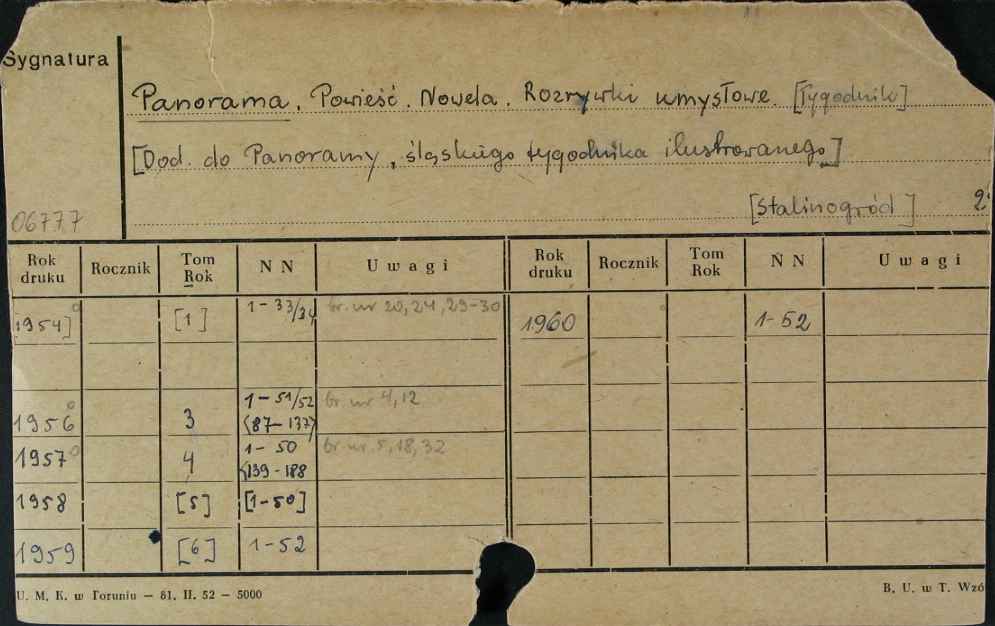 Sygnatura
Panorama. Powieść. Nowela. Rozrywki umysłowe. [Tygodnik]
[Dod. do Panoramy, śląskiego tygodnika ilustrowanego]
06777 [Stalinogród] 2°
Rok druku Rocznik Tom Rok NN Uwagi Rok druku Rocznik Tom Rok NN Uwagi
[1954] [1] 1-33/34 br. nr 20, 24, 29-30 1960 1-52
1956 3 1-51/52 br. nr 4, 12
<87-137>
1957 4 1-50 br. nr. 5, 18, 32
<139-188
1958 [5] [1-50]
1959 [6] 1-52
U. M. K. w Toruniu — 81. II. 52 — 5000 B. U. w T. Wzó